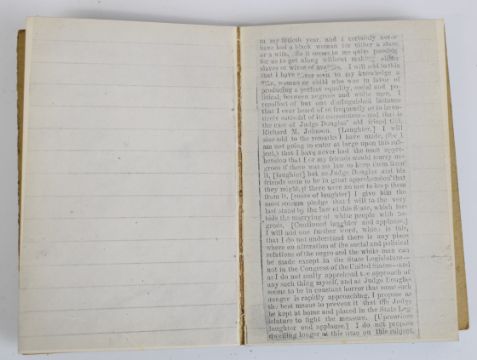 in my fiftieth year, and I certainly never
have had a black woman for either a slave
or a wife. So it seems to me quite possible
for us to get along without making either
slaves or wives of negroes. I will add to this
that I have never seen to my knowledge a
man, woman or child who was in favor of
producing a perfect equality, social and po-
litical, between negroes and white men. I
recollect of but one distinguished instance
that I ever heard of so frequently as to be en-
tirely satisfied of its correctness—and that is
the case of Judge Douglas' old friend Col.
Richard M. Johnson. [Laughter.] I will
also add to the remarks I have made, (for I
am not going to enter at large upon this sub-
ject,) that I have never had the least appre-
hension that I or my friends would marry ne-
groes if there was no law to keep them from
it, [laughter] but as Judge Douglas and his
friends seem to be in great apprehension that
they might, if there were no law to keep them
from it, [roars of laughter] I give him the
most solemn pledge that I will to the very
last stand by the law of this State, which for-
bids the marrying of white people with ne-
groes. [Continued laughter and applause.]
I will add one further word, which is this,
that I do not understand there is any place
where an alteration of the social and political
relations of the negro and the white man can
be made except in the State Legislature—
not in the Congress of the United States—and
as I do not really apprehend the approach of
any such thing myself, and as Judge Douglas
seems to be in constant horror that some such
danger is rapidly approaching, I propose as
the best means to prevent it that the Judge
be kept at home and placed in the State Leg-
islature to fight the measure. [Uproarious
laughter and applause.] I do not propose
dwelling longer at this time on this subject.